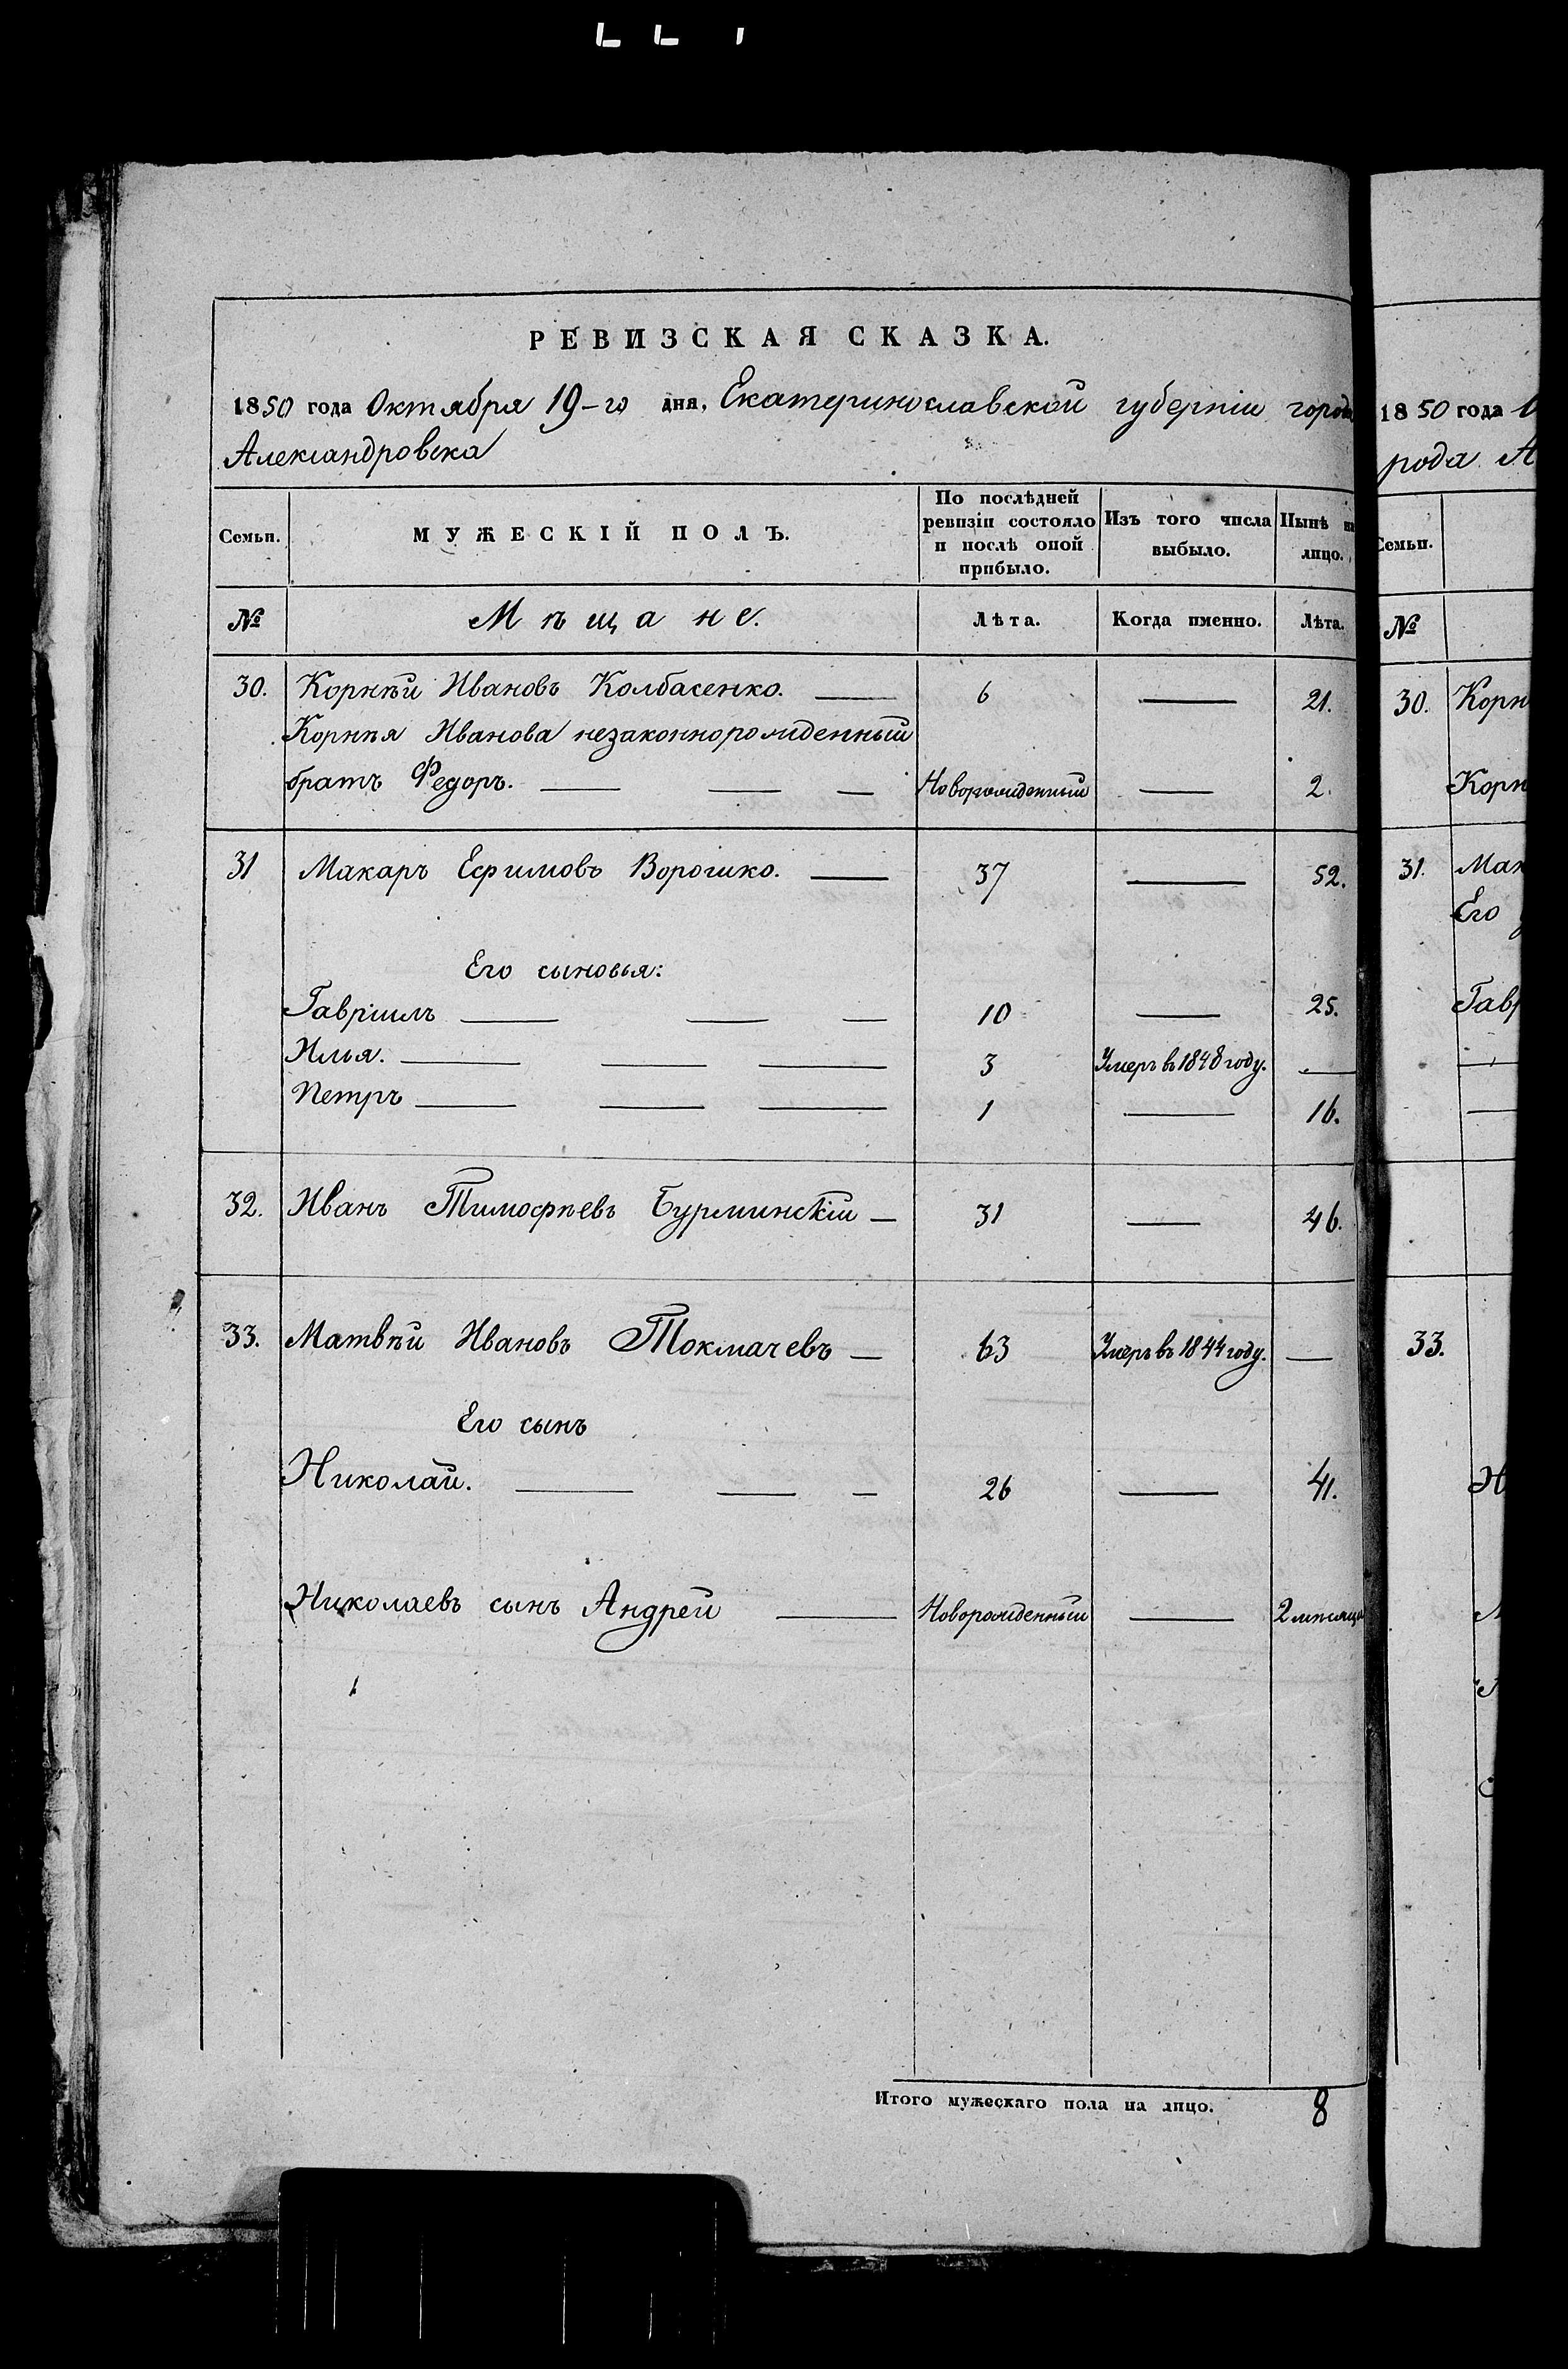 РЕВИЗСКАЯ СКАЗКА.
1850 года Октября 19-го дня, Екатеринославской губернiи города
Александровска
Семьи. МУЖЕСКІЙ ПОЛЪ. По послѣдней ревизіи состояло и послѣ оной прибыло. Изъ того числа выбыло. Нынѣ на лицо.
№ Мѣщане. Лѣта. Когда именно. Лѣта.
30. Корнѣй Ивановъ Колбасенко. — 6 — 21.
Корнѣя Иванова незаконнорожденный
братъ Федоръ. — — — Новорожденный — 2.
31 Макаръ Ефимовъ Ворошко. — 37 — 52.
Его сыновья:
Гавріилъ — — — 10 — 25.
Илья. — — — 3 Умеръ въ 1848 году. —
Петръ — — — 1 — 16.
32. Иванъ Тимофѣевъ Бурминскій — 31 — 46.
33. Матвѣй Ивановъ Токмачевъ — 63 Умеръ въ 1844 году. —
Его сынъ
Николай. — — — 26 — 41.
Николаевъ сынъ Андрей — Новорожденный — 2 мѣсяца
Итого мужескаго пола на лицо. 8
1850 года
рода А
Семьи.
№
30. Корн
Корн
31. Мак
Его
Гавр
33.